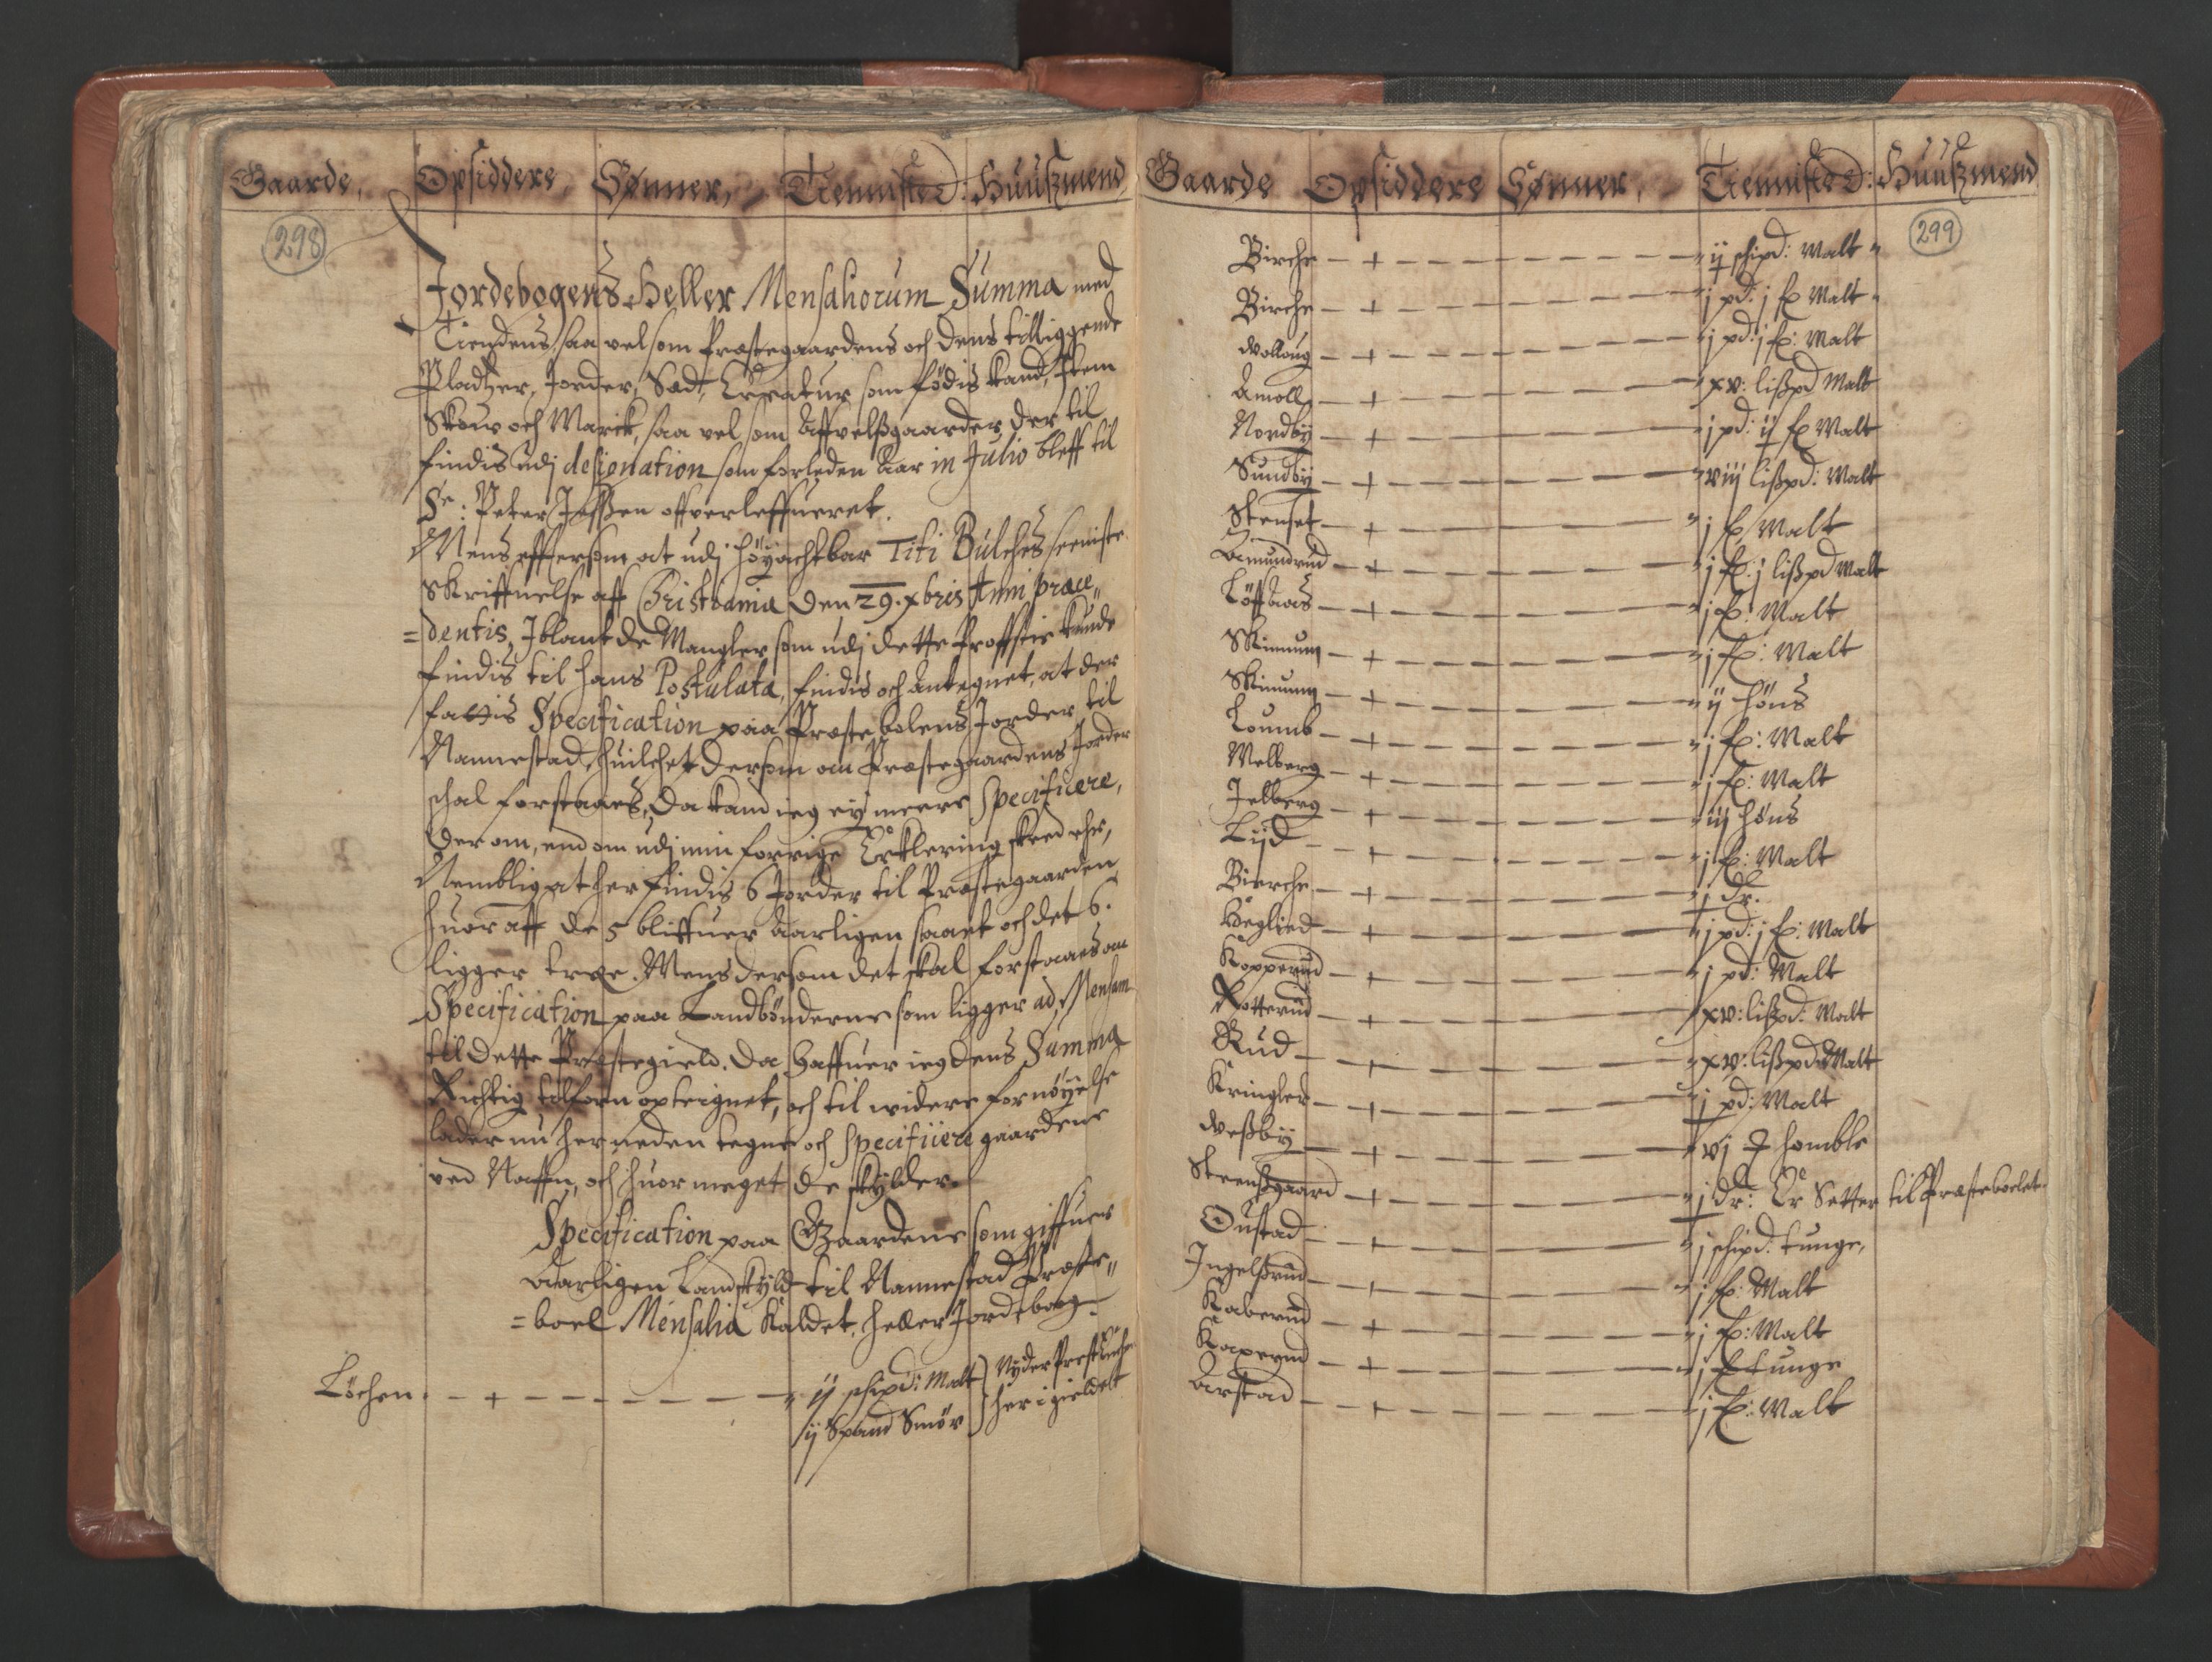 Gaarde, Opsiddere, Sønner, Tienniste D: Huuszmend
298
Jordebogens Heller Mensaliorum Summa med
Tiendens, saa vel som Præstegaardens och dens tilliggende
Pladtzer, Jorder, Sæd, Creatur som födis kand, Item
Skouv och Marck, saa vel som Affvelszgaarder der til
findis udj designation som forleden Aar in Julio bleff til
Sr: Peter Jessen offverleffueret.
Mens effterson at udj höyachtbar Titi Bülches seeniste
Skriffuelse aff Christiania den 29. xbris Anni præce„
=dentis, Iblant de Mangler som udj dette Proffstie kunde
findis til hans Postulata, findis och antegnet, at der
fattis Specification paa Præstebolens Jorder til
Nannestad, huilchet dersom om Præstegaardens Jorder
schal forstaaes, da kand ieg ey meere specificere,
der om, end om udj min forrige Erklering skeed ehr,
Nemblig at her findis 6 Jorder til Præstegaarden
huor aff de 5 bliffuer Aarligen saaet och det 6.
ligger træe. Mens dersom det skal forstaaes om
Specification paa Landbönderne som ligger ad Mensam
til dette Præstegield. Da haffuer ieg dens Summa
Richtig tilforn opteignet, och til widere fornöyelse
lader nu her neden tegne och specificere gaardene
ved Naffn, och huor meget de skylder.
Specification paa Gaardene som giffuer
Aarligen Landskyld til Nannestad Præste„
=boel Mensalia Kaldet, heller Jordebog.
Löchen — + — — — — — ij schipd: Malt } Nyder Præst Enchen
ij Spand Smör } her i gieldet
Gaarde Opsiddere Sønner, Tienniste D: Huuszmend
299
Birche — + — — — — ij schipd: Malt
Birche — + — — — — j pd: j f: Malt
Wolloug — + — — — — j pd: j f: Malt
Amoll — + — — — — xv: liszpd Malt
Nordby — + — — — — j pd: ij f: Malt
Sundby — + — — — — viij liszpd: Malt
Stenset — + — — — — j f: Malt
Amundrud — + — — — — j f: j liszpd Malt
Löffaas — + — — — — j f: Malt
Skimung — + — — — — j f: Malt
Skimung — + — — — — ij höns
Loumb — + — — — — j f: Malt
Melberg — + — — — — j f: Malt
Jelberg — + — — — — iij höns
Lijd — + — — — — j f: Malt
Bierche — + — — — — j dr.
Heglied — + — — — — j pd: j f: Malt
Kopperud — + — — — — j pd: Malt
Rotterud — + — — — — xv: liszpd: Malt
Rud — + — — — — xv: liszpd: Malt
Kringler — + — — — — j pd: Malt
Weszby — + — — — — vj homble
Steenszgaard — + — — — — j dr: Er Setter til Præsteboelet
Oustad — + — — — — j schipd: tunge,
Ingelszrud — + — — — — j f: Malt
Kaberud — + — — — — j f: Malt
Koxerud — + — — — — j f tunge
Aarstad — + — — — — j f: Malt